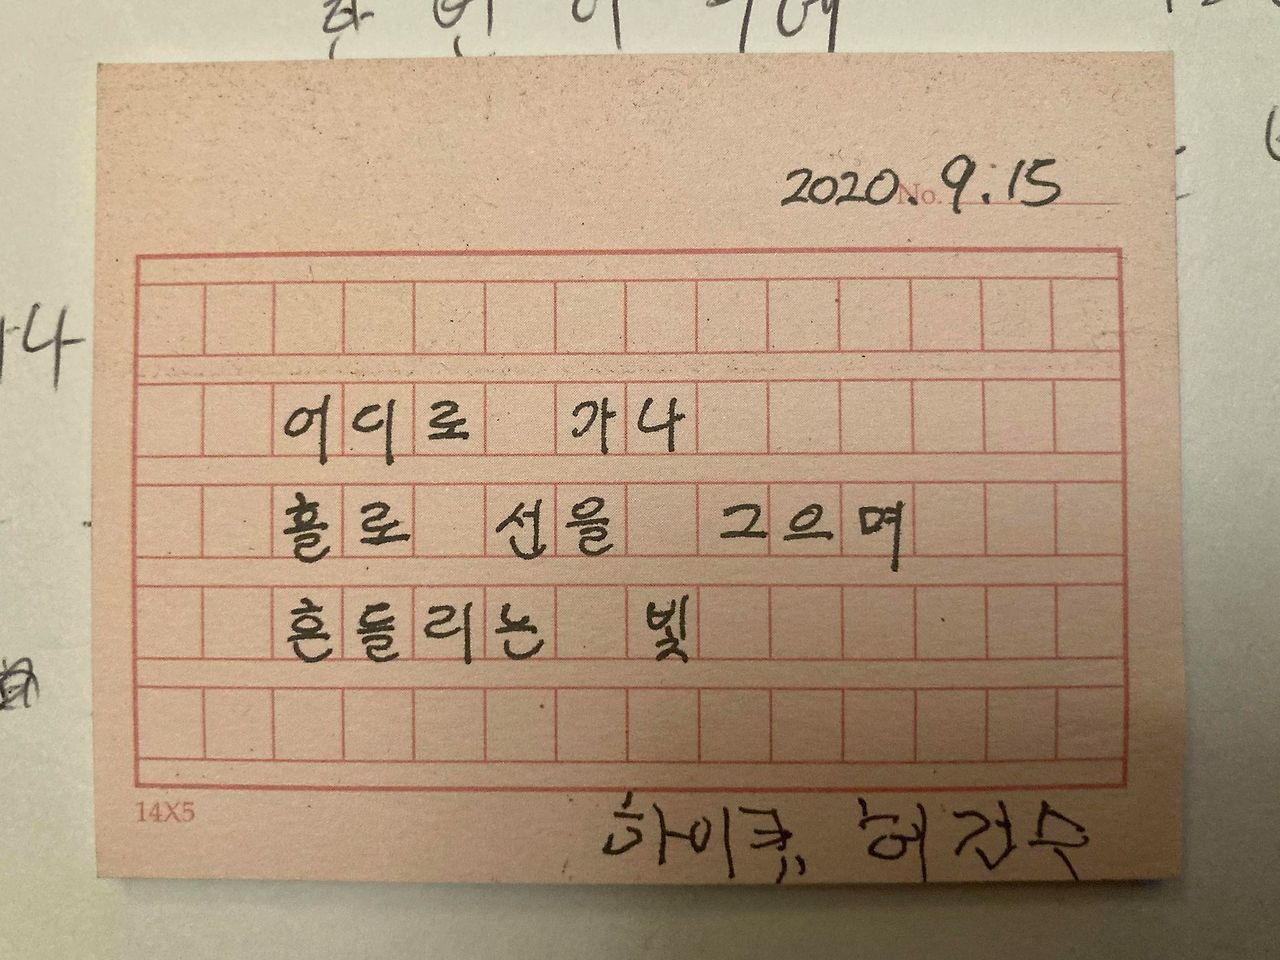 2020. 9. 15
No.
어디로 가나
홀로 선을 그으며
흔들리는 빛
14X5
하이쿠, 허건수
14